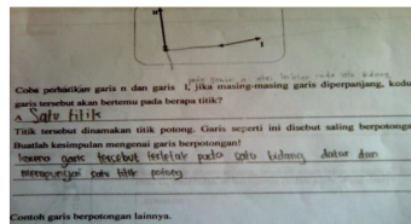 n
l
pada gambar n atau terletak pada satu bidang
Coba perhatikan garis n dan garis l, jika masing-masing garis diperpanjang, kedu
garis tersebut akan bertemu pada berapa titik?
Satu titik
Titik tersebut dinamakan titik potong. Garis seperti ini disebut saling berpotonga
Buatlah kesimpulan mengenai garis berpotongan!
karena garis tersebut terletak pada satu bidang datar dan
mempunyai satu titik potong
Contoh garis berpotongan lainnya.